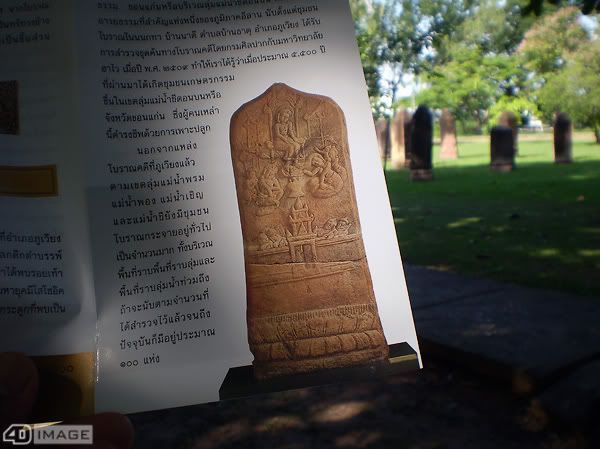 นทร์อย่าง
เป็นชื่อส่วน
ที่อำเภอภูเวียง
ธรรม ขอนแก่นหรือบริเวณลุ่มแม่น้ำชีตอนบน
อารยธรรมที่สำคัญแห่งหนึ่งของภูมิภาคอีสาน นับตั้งแต่ชุมชน
โบราณโนนนกทา บ้านนาดี ตำบลบ้านธาตุ อำเภอภูเวียง ได้รับ
การสำรวจขุดค้นทางโบราณคดีโดยกรมศิลปากรกับมหาวิทยาลัย
ฮาไว เมื่อปี พ.ศ. ๒๕๐๙ ทำให้เราได้รู้ว่าเมื่อประมาณ ๕,๕๐๐ ปี
ที่ผ่านมาได้เกิดชุมชนเกษตรกรรม
ขึ้นในเขตลุ่มแม่น้ำชีตอนบนหรือ
จังหวัดขอนแก่น ซึ่งผู้คนเหล่า
นี้ดำรงชีพด้วยการเพาะปลูก
นอกจากแหล่ง
โบราณคดีที่ภูเวียงแล้ว
ตามเขตลุ่มแม่น้ำพรม
แม่น้ำพอง แม่น้ำเชิญ
และแม่น้ำชียังมีชุมชน
โบราณกระจายอยู่ทั่วไป
เป็นจำนวนมาก ทั้งบริเวณ
พื้นที่ราบพื้นที่ราบลุ่มและ
พื้นที่ราบลุ่มน้ำท่วมถึง
ถ้าจะนับตามจำนวนที่
ได้สำรวจไว้แล้วจนถึง
ปัจจุบันก็มีอยู่ประมาณ
๑๐๐ แห่ง
4D IMAGE